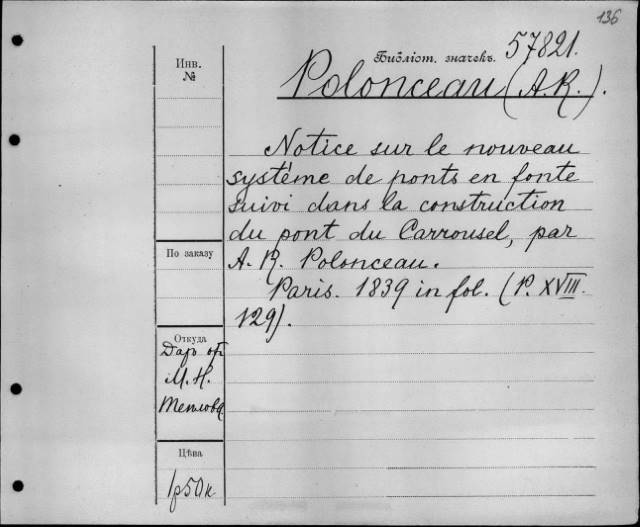 136
Инв.
№
Библіот. значекъ. 57821.
Polonceau (A.R.).
Notice sur le nouveau
système de ponts en fonte
suivi dans la construction
du pont du Carrousel, par
A. R. Polonceau.
Paris. 1839 in fol. (P. XVIII.
129).
По заказу
Откуда
Даръ отъ
М. Н.
Теплова
Цѣна
1р50к